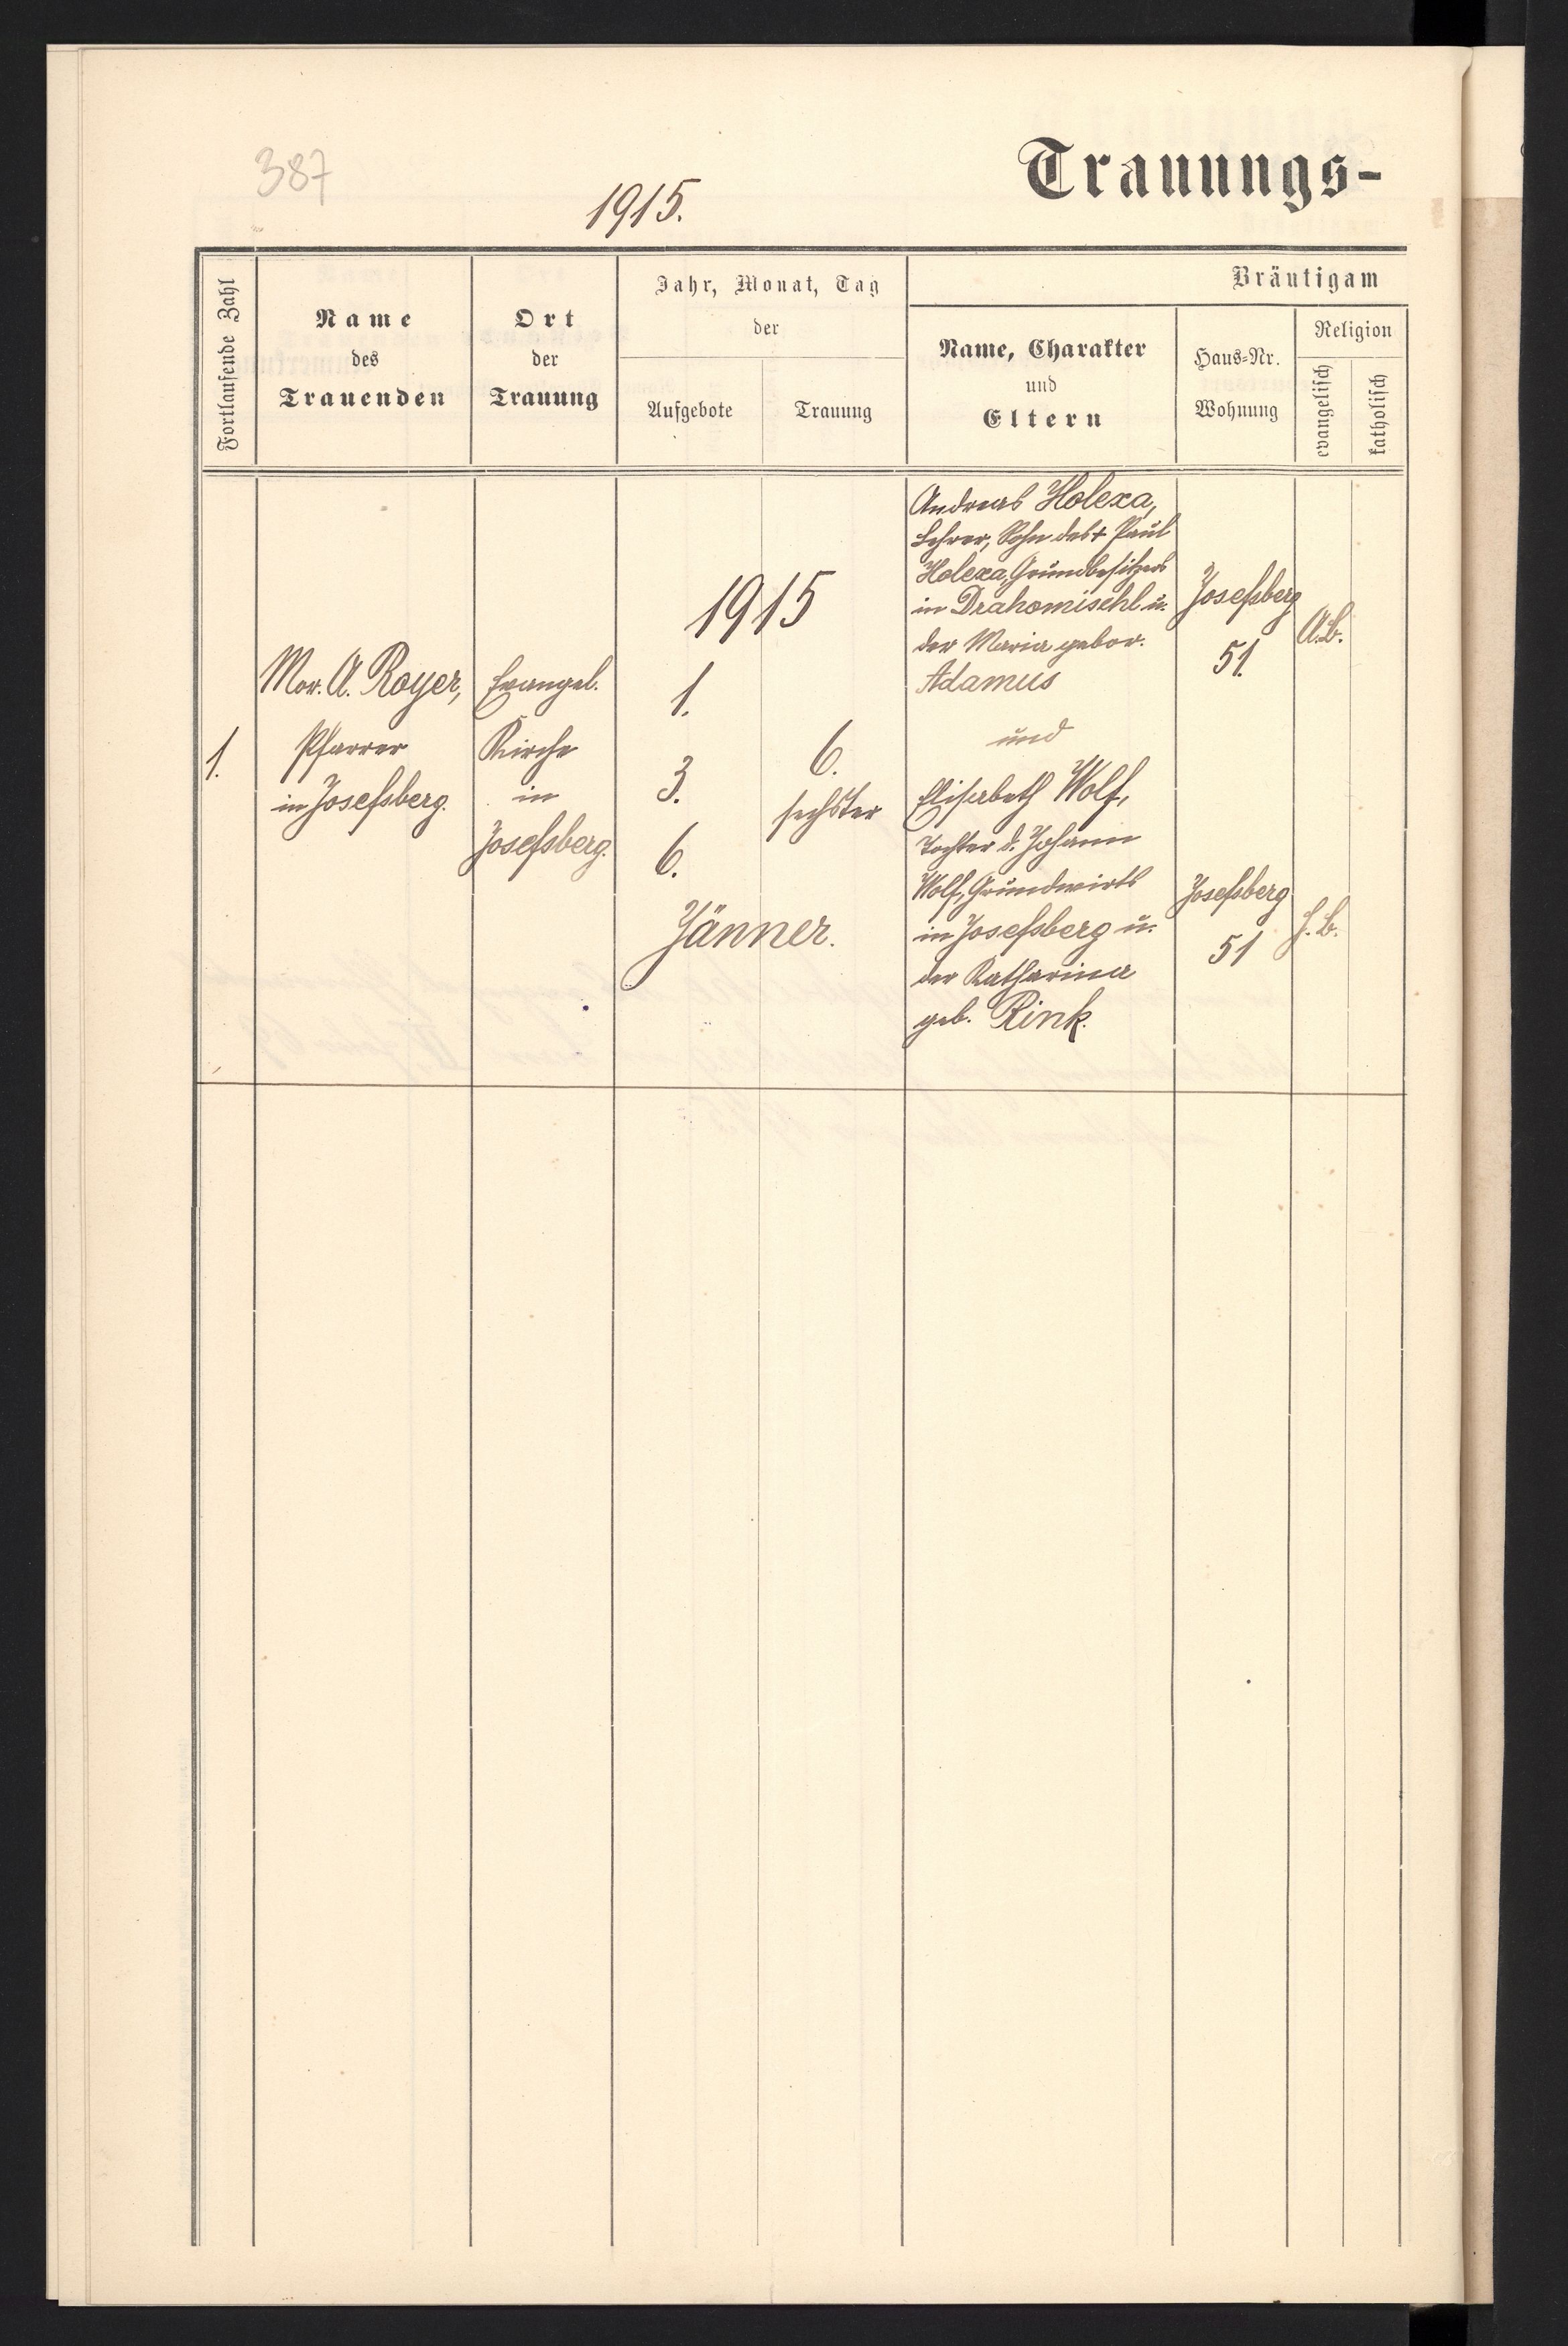 387
1915.
Trauungs-
Fortlaufende Zahl
Name
des
Trauenden
Ort
der
Trauung
Jahr, Monat, Tag
der
Aufgebote
Trauung
Bräutigam
Name, Charakter
und
Eltern
Haus-Nr.
Wohnung
Religion
evangelisch
katholisch
1.
Mor. A. Royer,
Pfarrer
in Josefsberg.
Evangel.
Kirche
in
Josefsberg.
1915
1.
3.
6.
6.
sechster
Jänner.
Andreas Holexa,
Lehrer, Sohn des + Paul
Holexa, Grundbesitzers
in Drahomischl u.
der Maria gebor.
Adamus
und
Elisabeth Wolf,
Tochter d. Johann
Wolf, Grundwirts
in Josefsberg u.
der Katharina
geb. Rink.
Josefsberg
51.
A.B.
Josefsberg
51
H.B.